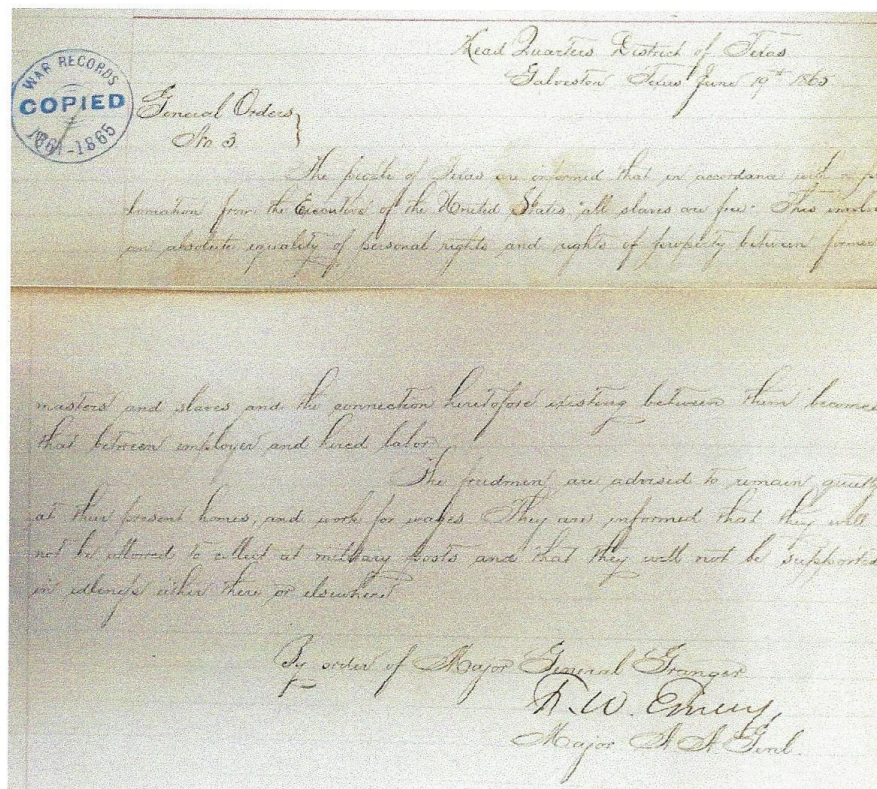 Head Quarters District of Texas
Galveston Texas June 19th 1865
WAR RECORDS
COPIED
1861-1865
General Orders
No. 3.
The people of Texas are informed that in accordance with a pro
clamation from the Executive of the United States, "all slaves are free". This involves
an absolute equality of personal rights and rights of property between former
masters and slaves and the connection heretofore existing between them becomes
that between employer and hired labor.
The freedmen are advised to remain quietly
at their present homes, and work for wages. They are informed that they will
not be allowed to collect at military posts and that they will not be supported
in idleness either there or elsewhere
By order of Major General Granger
F. W. Emery
Major A. A. Genl.